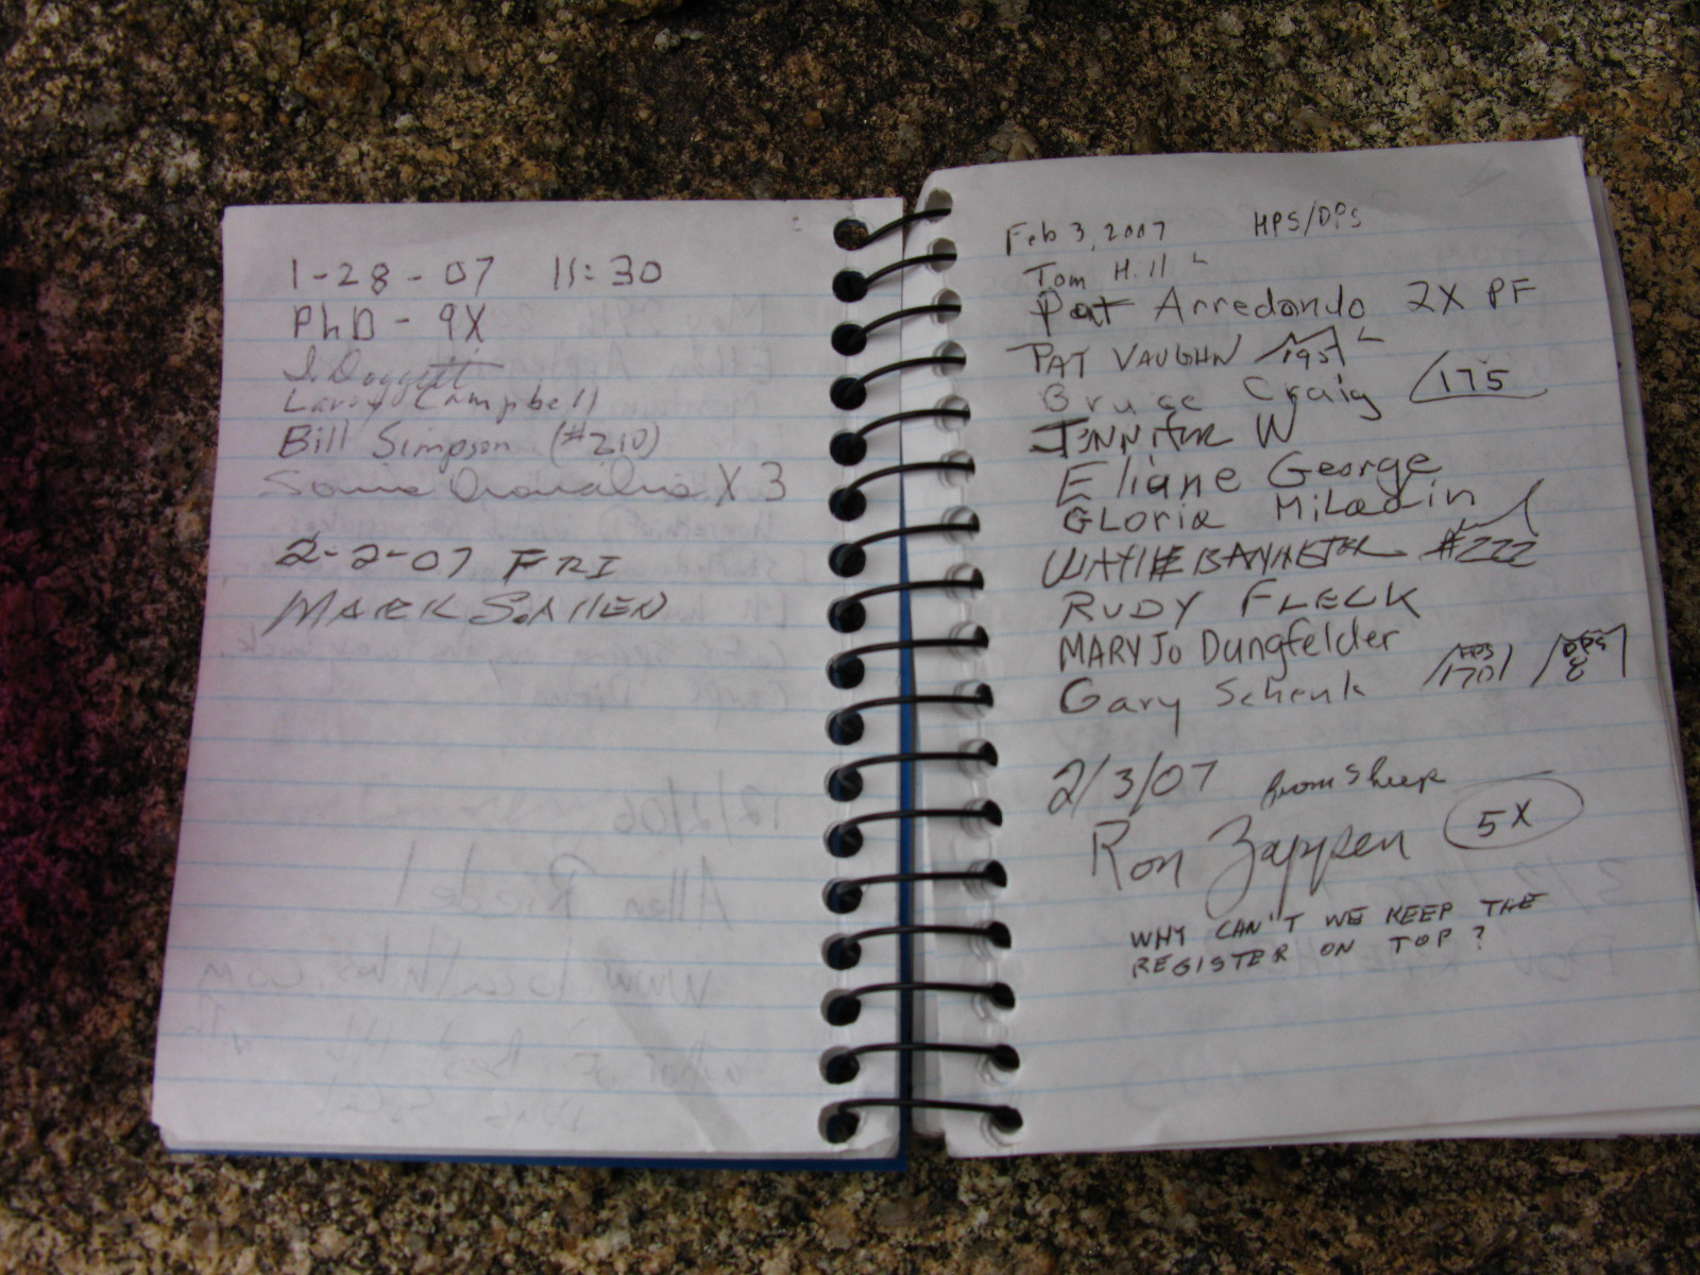 1-28-07 11:30
PhD - 9X
J. Doggett
Larry Campbell
Bill Simpson (#210)
X 3
2-2-07 FRI
MARK S. ALLEN
Feb 3, 2007 HPS/DPS
Tom Hill L
Pat Arredondo 2X PF
PAT VAUGHN 195 L
Bruce Craig 175
JENNIFER W
Eliane George
GLoria MiLadin
WAYNE BANNISTER #222
RUDY FLECK
MARY Jo Dungfelder
Gary Schenk HPS 170 DPS 8
2/3/07 from Sheep
Ron Zappen 5X
WHY CAN'T WE KEEP THE
REGISTER ON TOP?